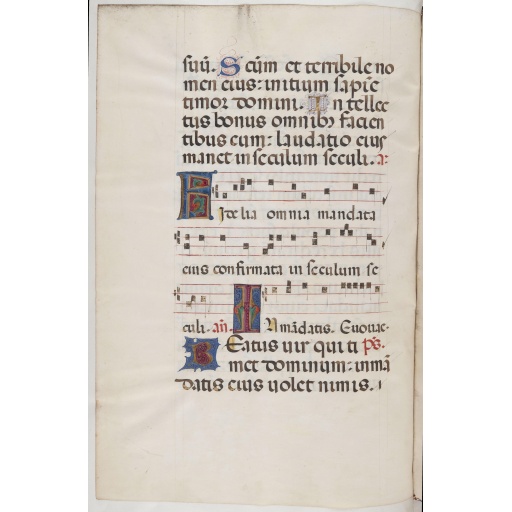 suū. S cūm et terribile no
men eius: initium sapiē
timor domini. In tellec
tus bonus omnibȝ facien
tibus eum: laudatio eius
manet in seculum seculi. a:
F idelia omnia mandata
eius confirmata in seculum se
culi. añ. I N mādatis. Euouae.
B Eatus uir qui ti ps.
met dominum: in mā
datis eius uolet nimis.